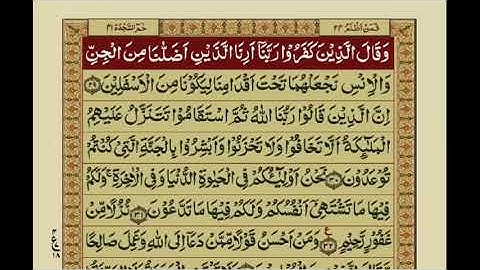 فمن اظلم ٢٤
حٰمٓ السجدة ٤١
وَقَالَ الَّذِيۡنَ كَفَرُوۡا رَبَّنَاۤ اَرِنَا الَّذَيۡنِ اَضَلّٰنَا مِنَ الۡجِنِّ
وَالۡاِنۡسِ نَجۡعَلۡهُمَا تَحۡتَ اَقۡدَامِنَا لِيَكُوۡنَا مِنَ الۡاَسۡفَلِيۡنَ ۲۹
اِنَّ الَّذِيۡنَ قَالُوۡا رَبُّنَا اللّٰهُ ثُمَّ اسۡتَقَامُوۡا تَتَنَزَّلُ عَلَيۡهِمُ
الۡمَلٰٓٮِٕكَةُ اَلَّا تَخَافُوۡا وَلَا تَحۡزَنُوۡا وَاَبۡشِرُوۡا بِالۡجَـنَّةِ الَّتِىۡ كُنۡتُمۡ
تُوۡعَدُوۡنَ ۳۰ نَحۡنُ اَوۡلِيٰٓـؤُكُمۡ فِى الۡحَيٰوةِ الدُّنۡيَا وَفِى الۡاٰخِرَةِ ۚ وَلَـكُمۡ
فِيۡهَا مَا تَشۡتَهِىۡۤ اَنۡفُسُكُمۡ وَلَـكُمۡ فِيۡهَا مَا تَدَّعُوۡنَ ۳۱ نُزُلًا مِّنۡ
غَفُوۡرٍ رَّحِيۡمٍ ۳۲ وَمَنۡ اَحۡسَنُ قَوۡلًا مِّمَّنۡ دَعَاۤ اِلَى اللّٰهِ وَعَمِلَ صَالِحًا